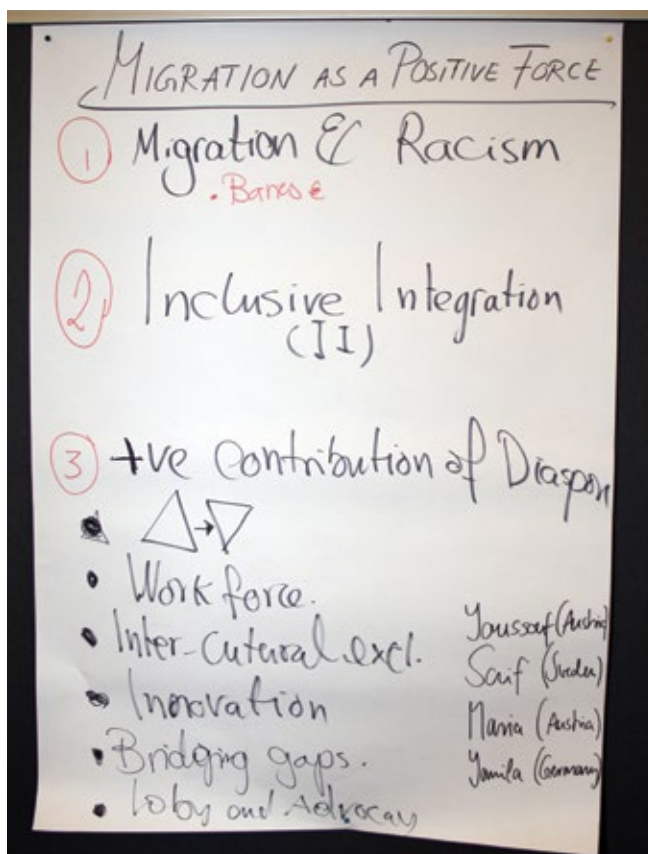 MIGRATION AS A POSITIVE FORCE
1 Migration & Racism
2 Inclusive Integration
(II)
3 +ve Contribution of Diaspor
Work force.
Inter-Cutural excl.
Innovation
Bridging gaps.
Loby and Advocay
Youssouf (Austria)
Saif (Sweden)
Maria (Austria)
Yamila (Germany)